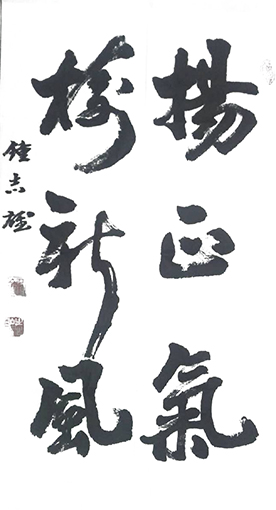 揚正氣
樹新風
鍾志雄